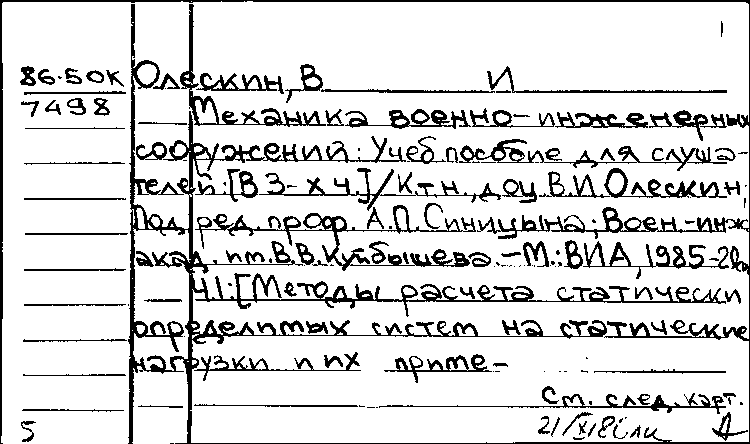 1
86-50К Олескин, В И
7498 Механика военно-инженерных
сооружений: Учеб пособие для слуша-
телей: [В 3-х ч.] / К.т.н., доц. В.И. Олескин;
Под ред. проф. А.П. Синицына; Воен.-инж
акад. им. В.В. Куйбышева. - М.: ВИА, 1985-20см
Ч.1: [Методы расчета статически
определимых систем на статические
нагрузки и их приме-
См. след. карт.
5 21/XI 86